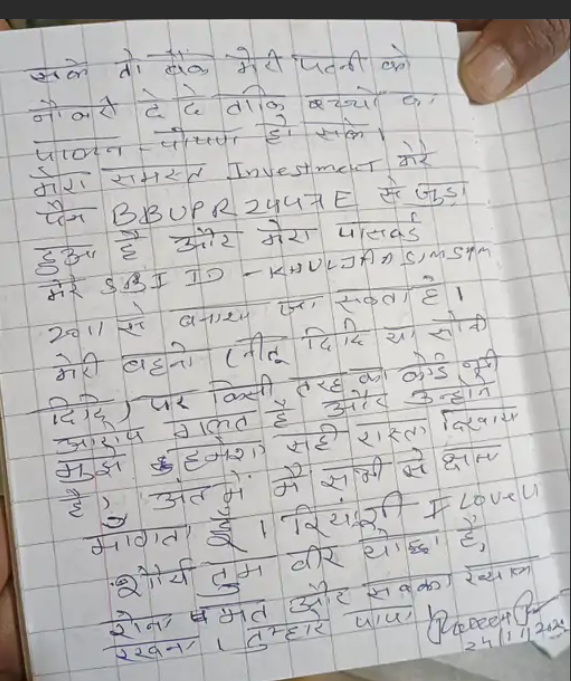 सके तो बैंक मेरी पत्नी को
नौकरी दे दे ताकि बच्चो का
पालन-पोषण हो सके।
मेरा समस्त Investment मेरे
पैन BBUPR2447E से जुड़ा
हुआ है और मेरा पासवर्ड
मेरे SBI ID - KHULJAASIMSIM
2011 से बनाया जा सकता है।
मेरी बहनो (नीतू दिदि या सोनी
दिदि) पर किसी तरह का कोई भी
आरोप गलत है और उन्होंने
मुझे हमेशा सही रास्ता दिखाया
है, अंत में मैं सभी से क्षमा
मांगता हूँ। दियांशी I Love U
शौर्य तुम वीर योद्धा है,
रोना मत और सबका ख्याल
रखना। तुम्हारे पापा
24/11/202